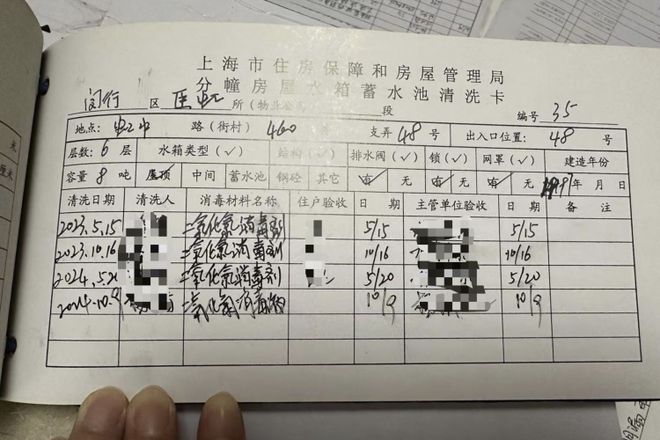 上海市住房保障和房屋管理局
分幢房屋水箱蓄水池清洗卡
闵行 区 所(物业公司 段 编号 35
地点: 路(街村) 460 支弄 48 号 出入口位置: 48 号
层数: 6 层 水箱类型(√) 结构(√) 排水阀(√) 锁(√) 网罩(√) 建造年份
容量 8 吨 屋顶 中间 蓄水池 钢砼 其它 有 无 有 无 有 无 1997年 月 日
清洗日期 清洗人 消毒材料名称 住户验收 日期 主管单位验收 日期 备注
2023.5.15 二氧化氯消毒剂 5/15 5/15
2023.10.16 二氧化氯消毒剂 10/16 10/16
2024.5.20 二氧化氯消毒剂 5/20 5/20
2024.10.9 二氧化氯消毒 10/9 10/9